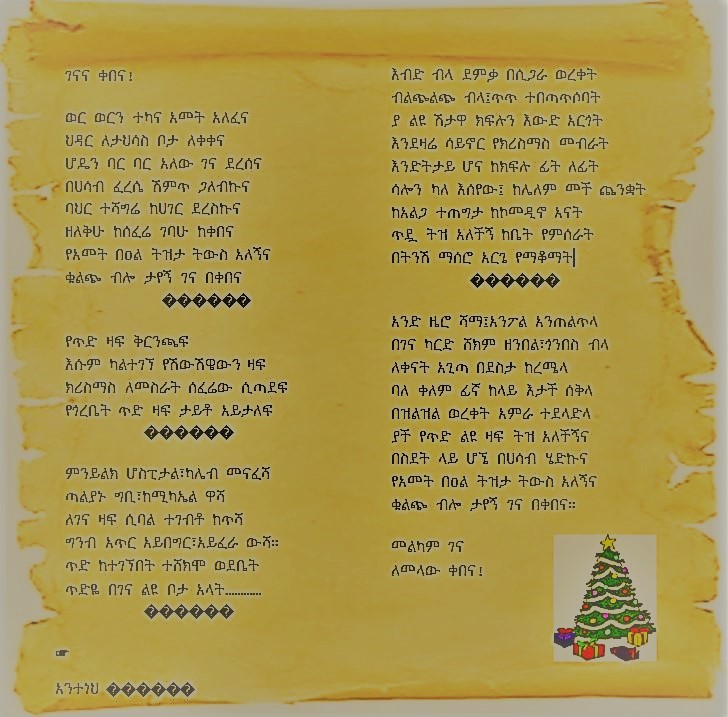 ገናና ቀበና!
ወር ወርን ተካና አመት አለፈና
ህዳር ለታህሳስ ቦታ ለቀቀና
ሆዴን ባር ባር አለው ገና ደረሰና
በሀሳብ ፈረሴ ሽምጥ ጋለብኩና
ባህር ተሻግሬ ከሀገር ደረስኩና
ዘለቅሁ ከሰፈሬ ገባሁ ከቀበና
የአመት በዐል ትዝታ ትውስ አለኝና
ቁልጭ ብሎ ታየኝ ገና በቀበና
������
የጥድ ዛፍ ቅርንጫፍ
እሱም ካልተገኘ የሽውሽዌውን ዛፍ
ክሪስማስ ለመስራት ሰፈሬው ሲጣደፍ
የጎረቤት ጥድ ዛፍ ታይቶ አይታለፍ
������
ምንይልክ ሆስፒታል፣ካሌብ መናፈሻ
ጣልያኑ ግቢ፣ከሚካኤል ዋሻ
ለገና ዛፍ ሲባል ተገብቶ ከጥሻ
ግንብ አጥር አይበግር፣አይፈራ ውሻ።
ጥድ ከተገኘበት ተሸክሞ ወደቤት
ጥድዬ በገና ልዩ ቦታ አላት............
������
☛
አንተነህ ������
እብድ ብላ ደምቃ በሲጋራ ወረቀት
ብልጭልጭ ብላ፤ጥጥ ተበጣጥሶባት
ያ ልዩ ሽታዋ ክፍሉን እውድ አርጎት
እንደዛሬ ሳይኖር የክሪስማስ መብራት
እንድትታይ ሆና ከክፍሉ ፊት ለፊት
ሳሎን ካለ እሰየው፤ ከሌለም መች ጨንቋት
ከአልጋ ተጠግታ ከኮመዲኖ አናት
ጥዷ ትዝ አለችኝ ከቤት የምሰራት
በትንሽ ማሰሮ አርጌ የማቆማት
������
አንድ ዜሮ ሻማ፤አንፖል አንጠልጥላ
በገና ካርድ ሸክም ዘንበል፣ጎንበስ ብላ
ለቀናት አጊጣ በደስታ ከረሜላ
ባለ ቀለም ፊኛ ከላይ እታች ሰቅላ
በዝልዝል ወረቀት አምራ ተደላድላ
ያች የጥድ ልዩ ዛፍ ትዝ አለችኝና
በስደት ላይ ሆኜ በሀሳብ ሄድኩና
የአመት በዐል ትዝታ ትውስ አለኝና
ቁልጭ ብሎ ታየኝ ገና በቀበና።
መልካም ገና
ለመላው ቀበና!